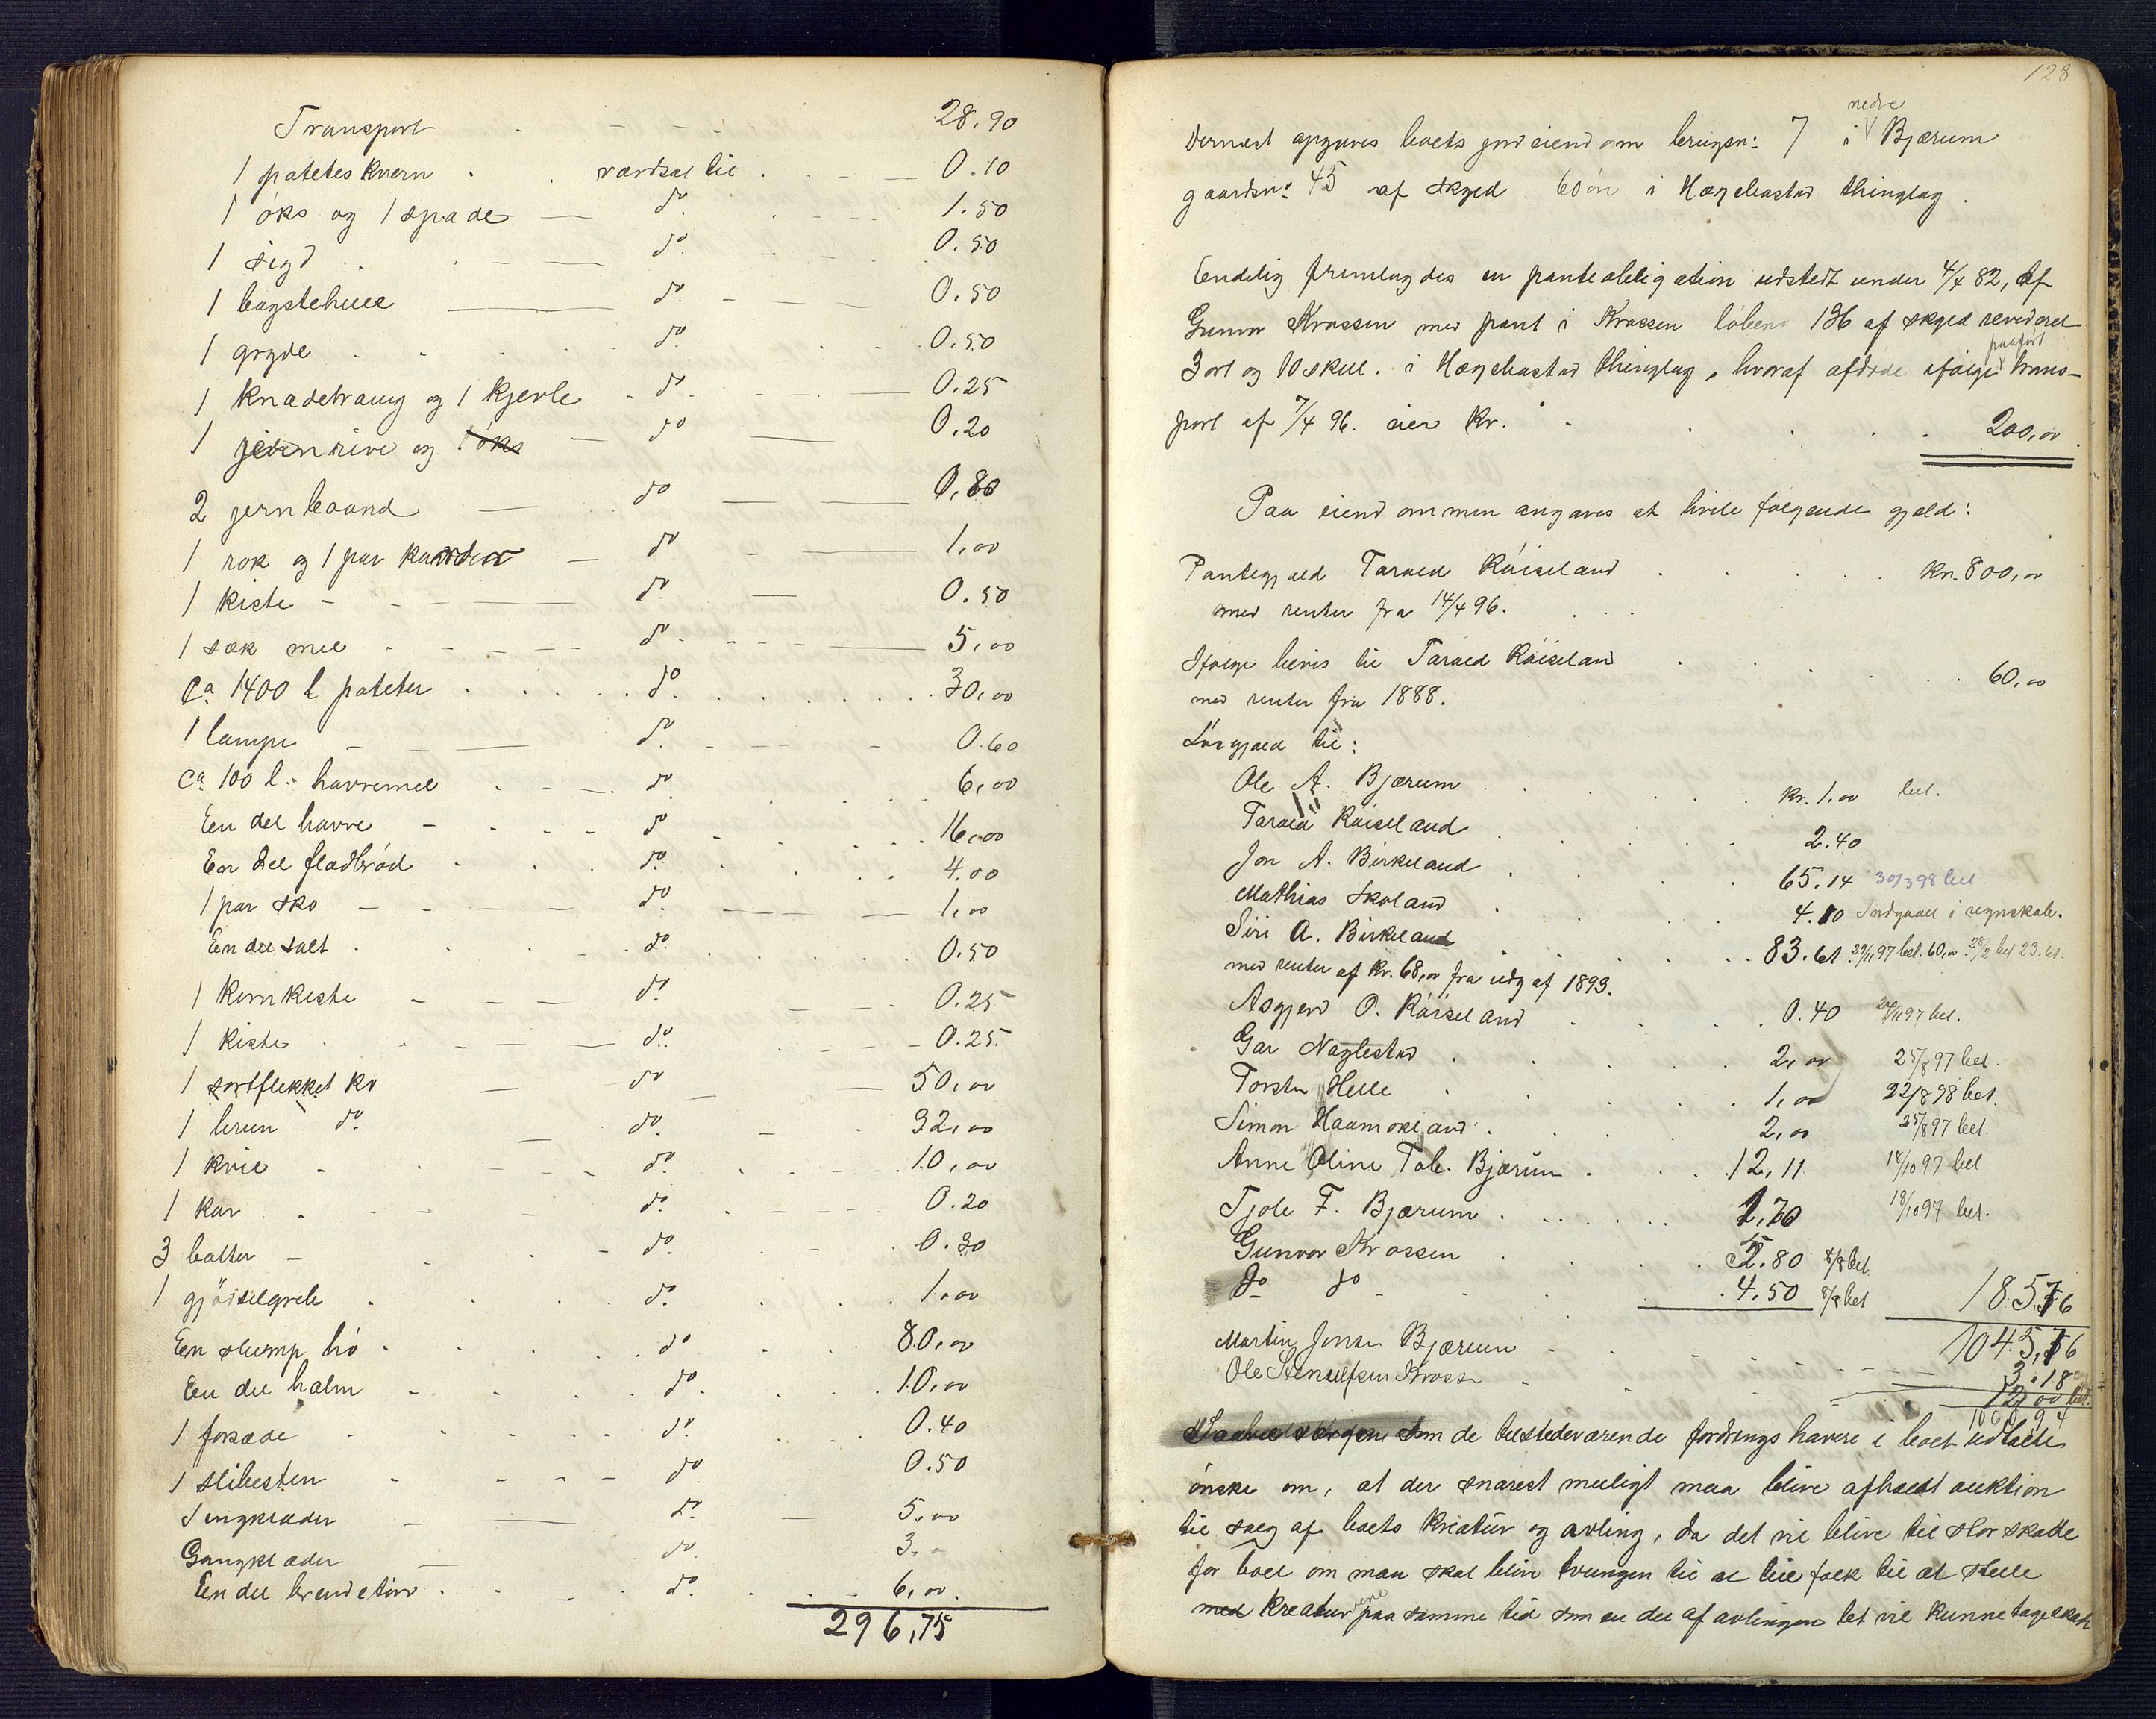 Transport 28.90
1 poteteskvern værdsat til 0.10
1 öks og 1 spade do 1.50
1 sigd do 0.50
1 bagstehelle do 0.50
1 gryde do 0.50
1 knadetraug og 1 kjevle do 0.25
1 jernrive og 1 öks do 0.20
2 jernbaand do 0.80
1 rok og 1 par karder do 1,00
1 kiste do 0.50
1 sæk mel do 5,00
Ca 1400 l poteter do 30,00
1 lampe do 0.60
Ca 100 l. havremel do 6,00
En del havre do 16,00
En del fladbröd do 4.00
1 par sko do 1,00
En del salt do 0.50
1 kornkiste do 0.25
1 kiste do 0.25
1 sortflekket ko do 50,00
1 brun do do 32,00
1 kvie do 10,00
1 kar do 0.20
3 baller do 0.30
1 gjödselgreb do 1,00
En slump hö do 80,00
En del halm do 10,00
1 forsæde do 0.40
1 slibesten do 0.50
Sengklæder do 5,00
Gangklæder do 3,
En del brendetorv do 6,00
296,75
128
Dernæst opgaves boets jordeiendom brugsn: 7 i nedre Bjærum
gaardsn: 45 af skyld 60 öre i Hægebostad thinglag.
Endelig fremlagdes en panteobligation udstedt under 4/4 82, af
Gunvor Krossen med pant i Krossen löben 136 af skyld revideret
3 ort og 10 skill. i Hægebostad thinglag, hvoraf afdöde ifölge paafört trans-
port af 7/4 96. eier kr. 200,00
Paa eiendommen angaves at hvile fölgende gjæld:
Pantegjæld Tarald Röiseland kr. 800,00
med renter fra 14/4 96.
Ifölge bevis til Tarald Röiseland 60,00
med renter fra 1888.
Lösgjæld til:
Ole A. Bjærum kr. 1,00 bet.
Tarald Röiseland 2.40
Jon A. Birkeland 65.14 30/3 98 bet.
Mathias Skoland 4.10 Indgaaet i regnskab.
Siri A. Birkeland 83.61 29/11 97 bet. 60,00 28/2 bet 23.61.
med renter af kr. 68,00 fra udg af 1893.
Asgjerd O. Röiseland 0.40 29/11 97 bet.
Gar Naglestad 2,00 25/8 97 bet.
Torsten Helle 1,00 22/8 98 bet.
Simon Haamokland 2,00 25/8 97 bet.
Anne Oline Tob. Bjærum 12,11 18/10 97 bet
Tjole F. Bjærum 1,70 18/10 97 bet.
Gunvor Krossen 2.80 8/8 bet
do do 4.50 8/8 bet 185,76
1045,76
Martin Jonsen Bjærum 3,18
Ole Stenulfsen Krossen 12,00 bet.
1060,94
som de tilstedeværende fordringshavere i boet udtalte
önske om, at der snarest muligt maa blive afholdt auktion
til salg af boets kreatur og avling, da det vil blive til stor skade
for boet om man skal blive tvungen til at leie folk til at stelle
med kreaturene paa samme tid som en del af avlingen let vil kunne tage skade